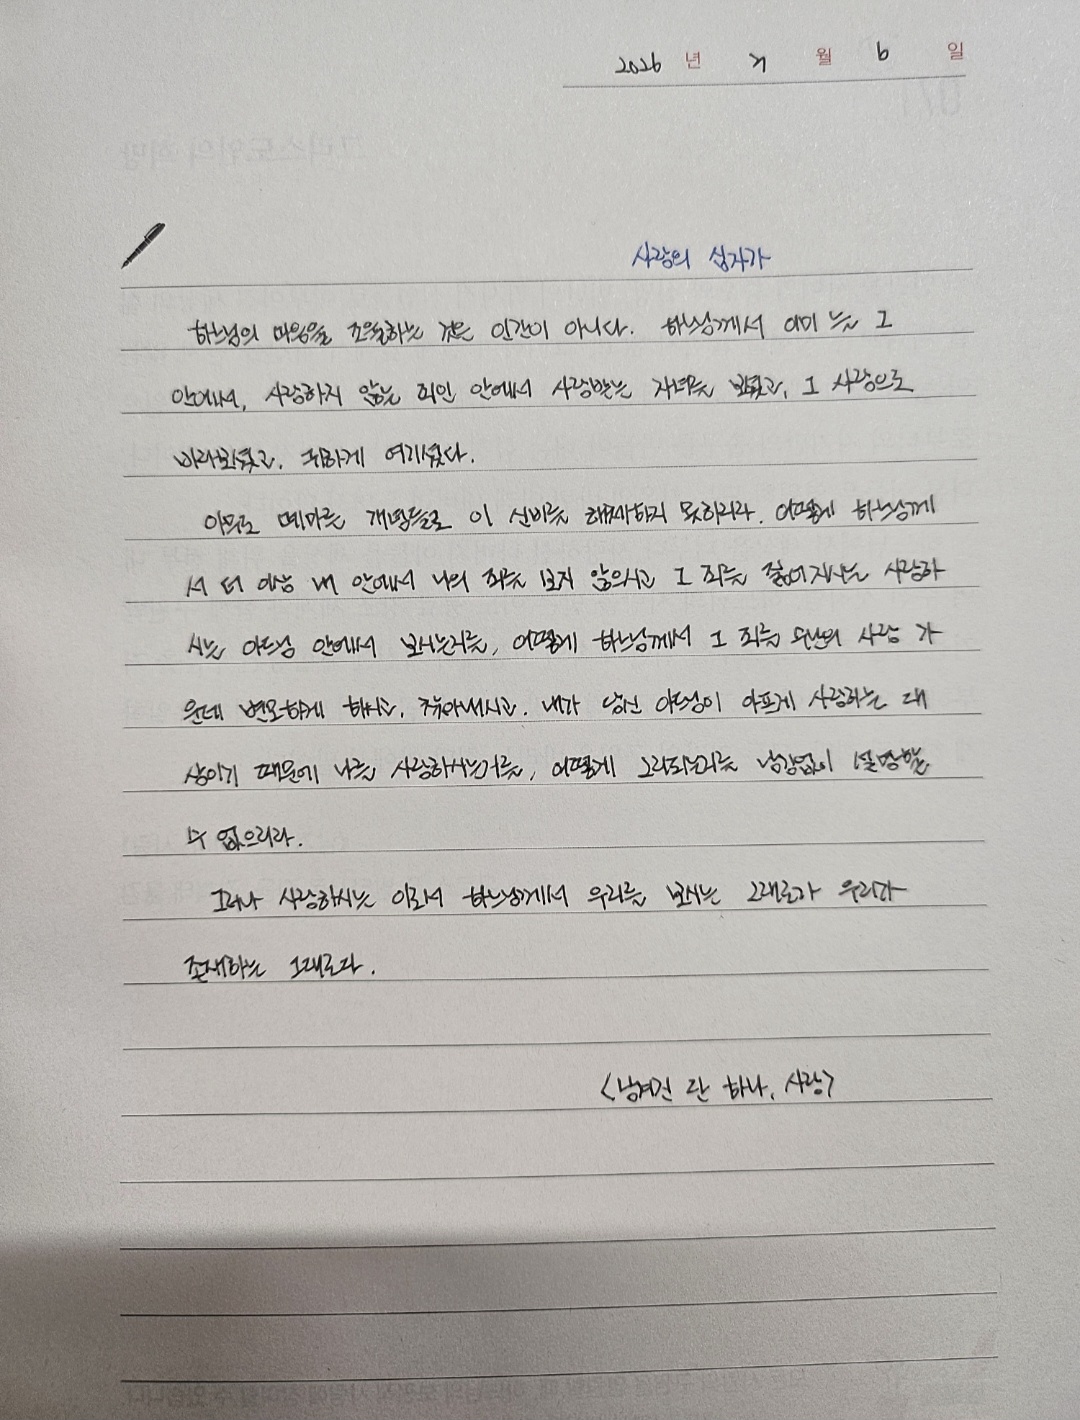 2026 년 월 6 일
사랑의 십자가
하느님의 마음을 조율하는 것은 인간이 아니다. 하느님께서 이미 늘 그
안에서, 사랑하지 않는 죄인 안에서 사랑받는 자녀를 보셨고, 그 사랑으로
바라보셨고, 귀하게 여기셨다.
아무도 메마른 개념들로 이 신비를 해체하지 못하리라. 어떻게 하느님께
서 더 이상 내 안에서 나의 죄를 보지 않으시고 그 죄를 짊어지시는 사랑하
시는 아드님 안에서 보시는지를, 어떻게 하느님께서 그 죄를 수난의 사랑 가
운데 변모하게 하시고, 내가 당신 아드님이 아프게 사랑하는 대
상이기 때문에 나를 사랑하시는지를, 어떻게 그리되는지를 남김없이 설명할
수 없으리라.
그러나 사랑하시는 이로서 하느님께서 우리를 보시는 그대로가 우리가
존재하는 그대로다.
<남겨진 단 하나, 사랑>